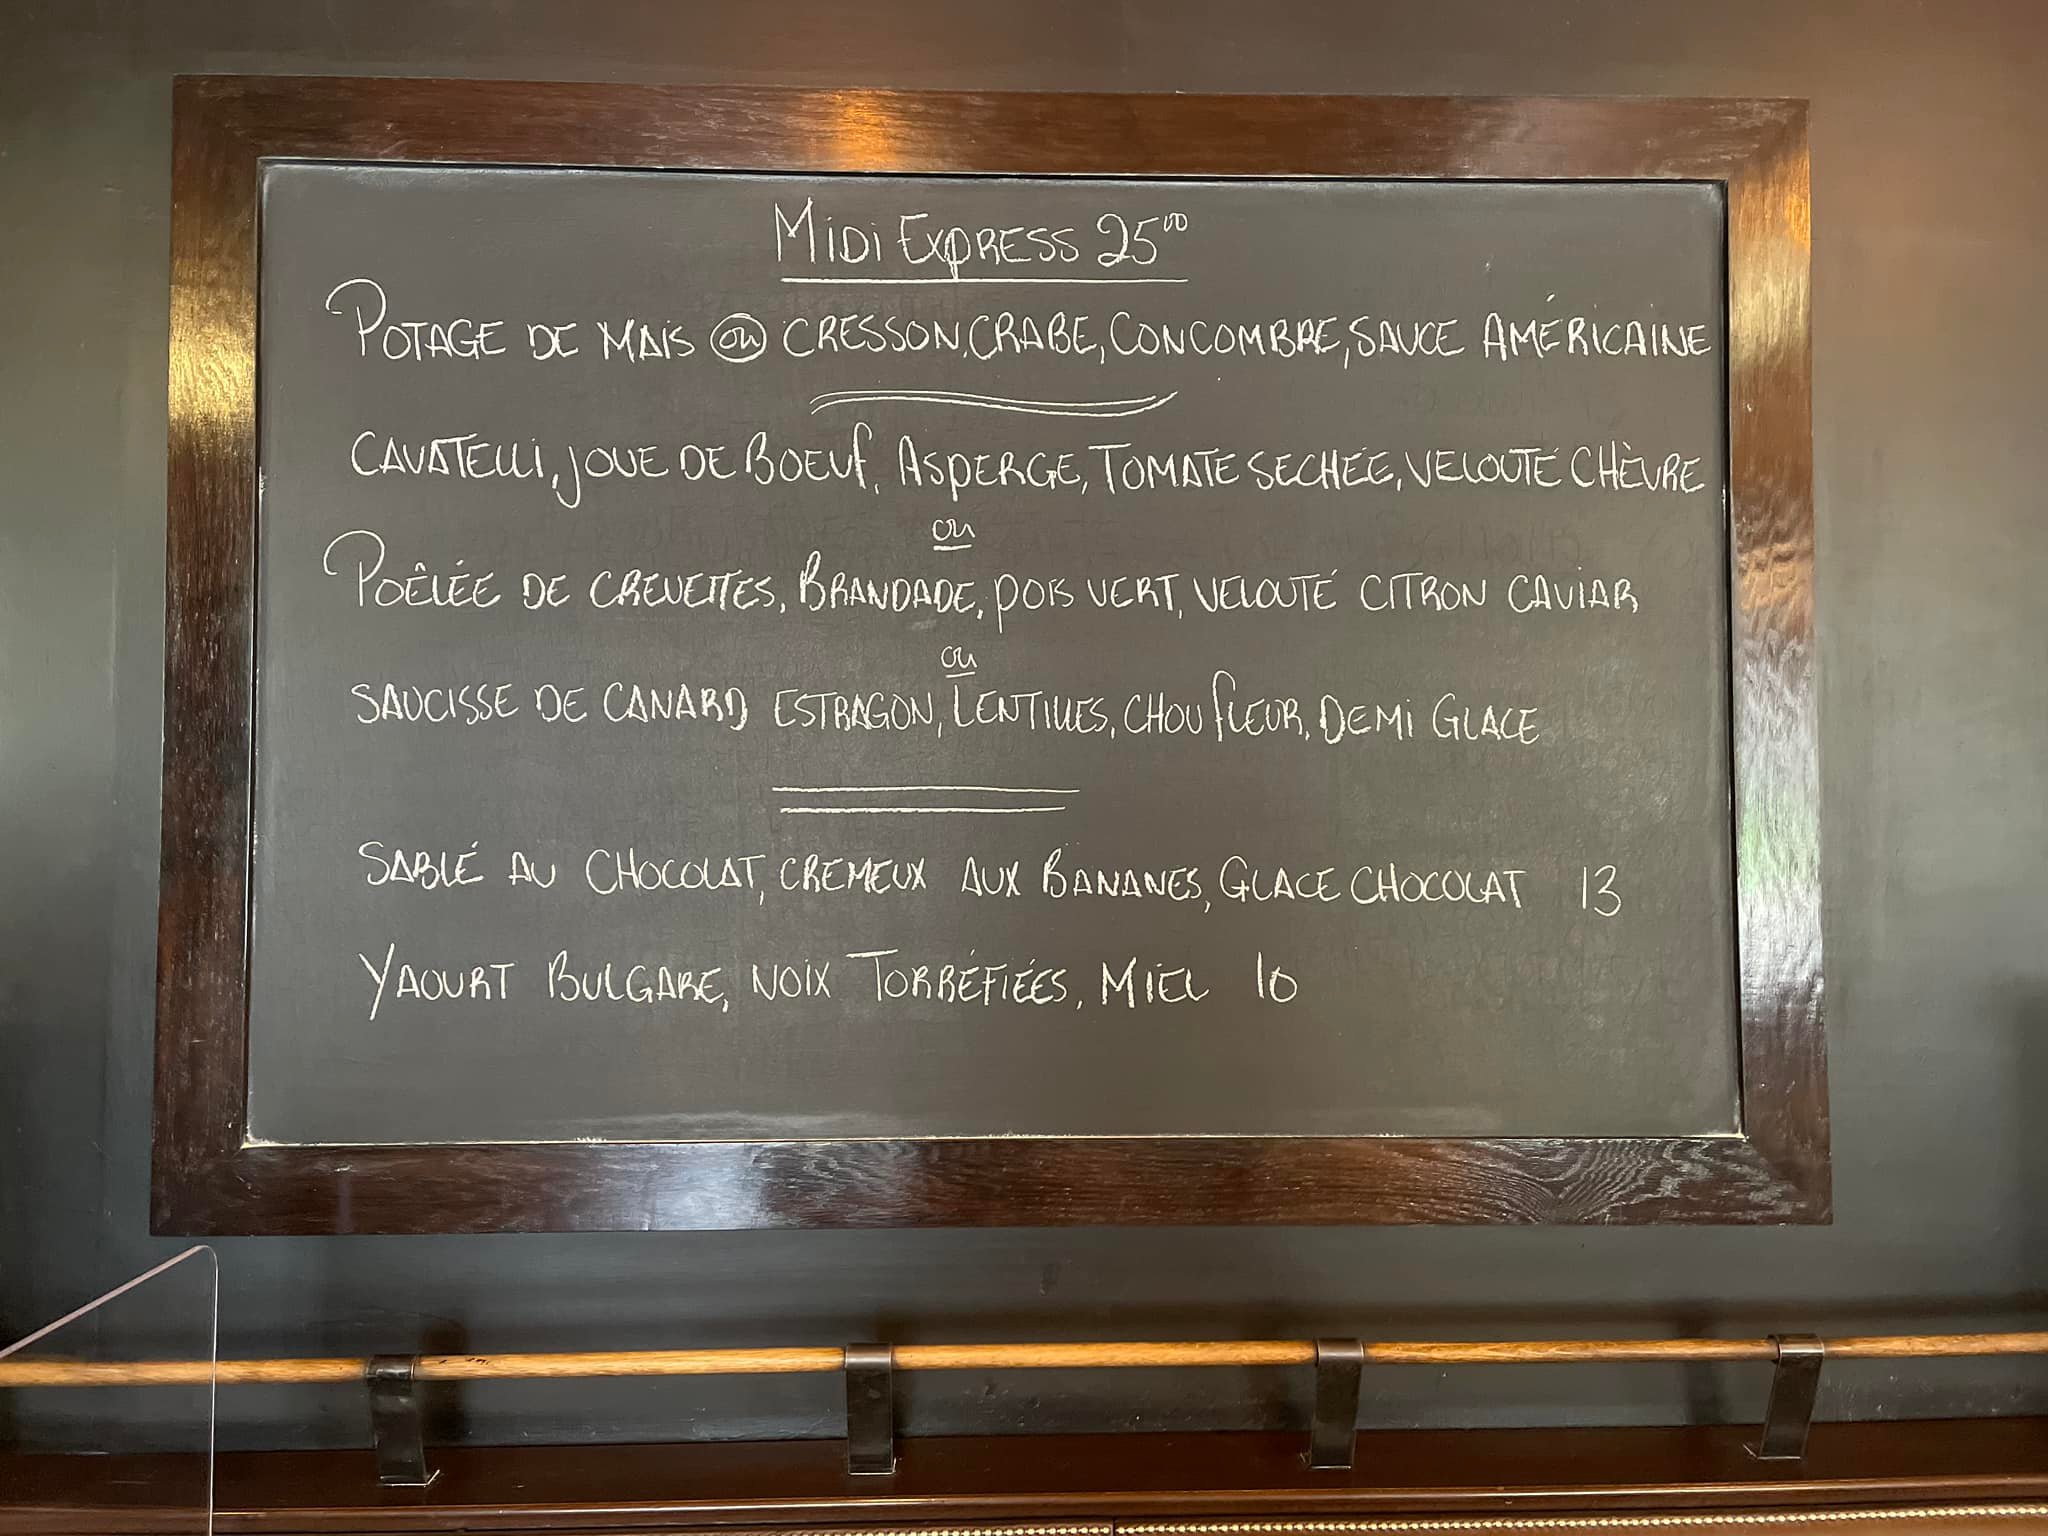 MIDI EXPRESS 25⁰⁰
POTAGE DE MAÏS ou CRESSON, CRABE, CONCOMBRE, SAUCE AMÉRICAINE
CAVATELLI, JOUE DE BOEUF, ASPERGE, TOMATE SECHÉE, VELOUTÉ CHÈVRE
ou
POÊLÉE DE CREVETTES, BRANDADE, POIS VERT, VELOUTÉ CITRON CAVIAR
ou
SAUCISSE DE CANARD ESTRAGON, LENTILLES, CHOU FLEUR, DEMI GLACE
SABLÉ AU CHOCOLAT, CREMEUX AUX BANANES, GLACE CHOCOLAT 13
YAOURT BULGARE, NOIX TORRÉFIÉES, MIEL 10